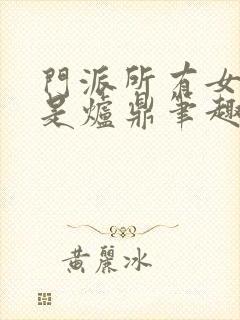 門派所有女
是爐鼎筆趣
黃麗冰